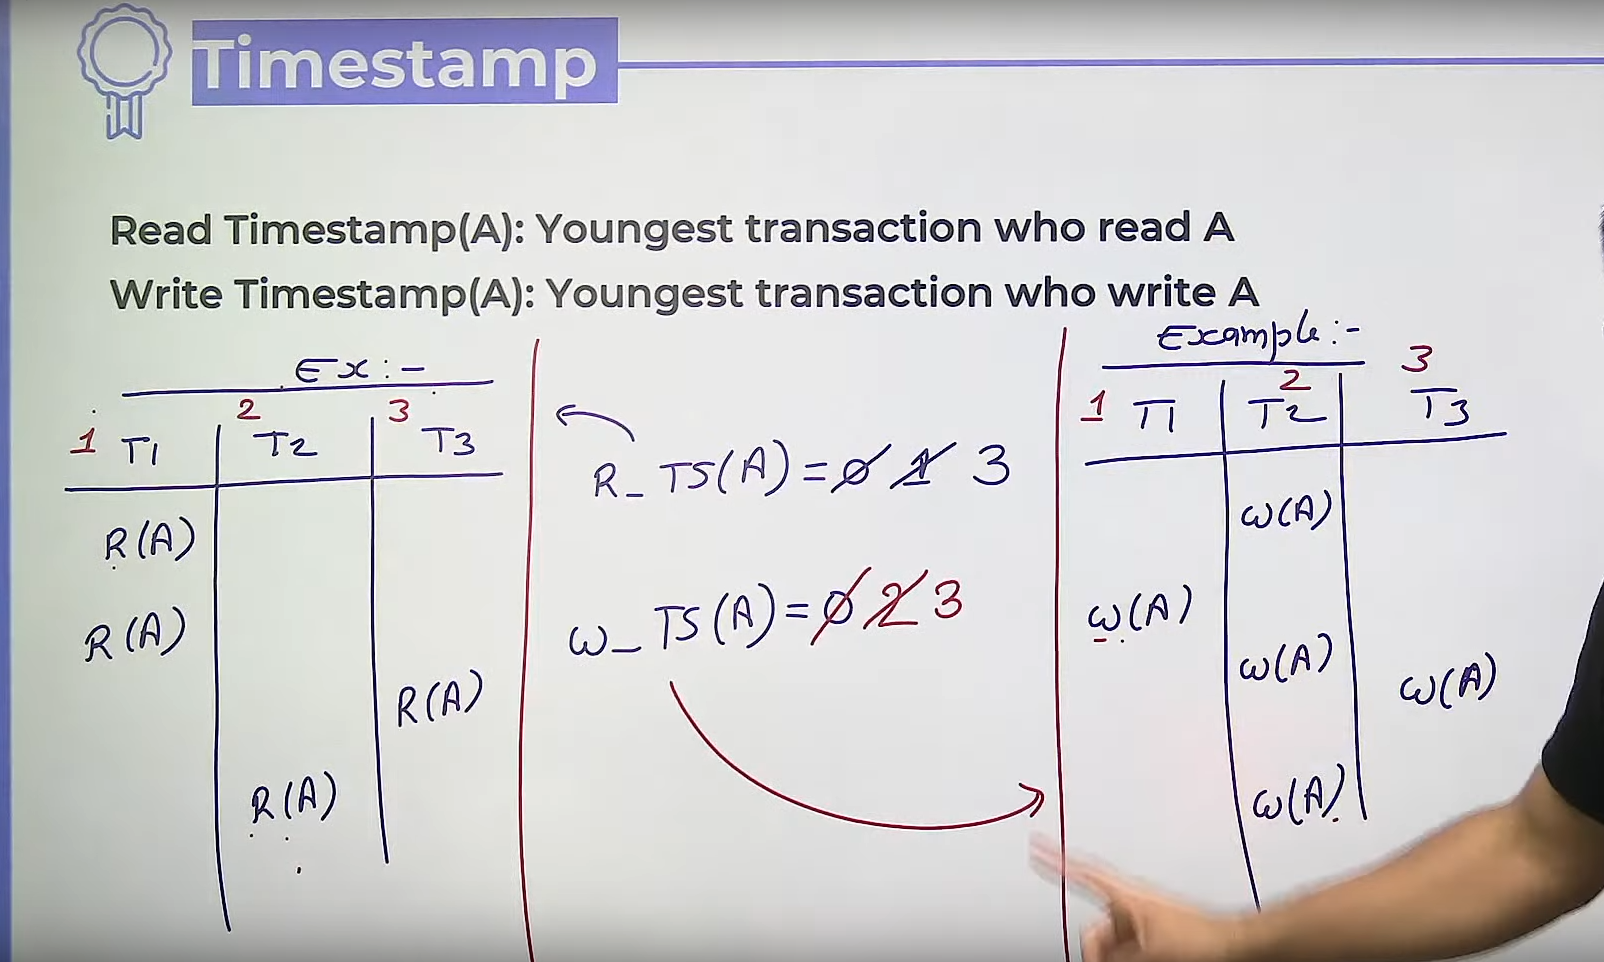 Timestamp
Read Timestamp(A): Youngest transaction who read A
Write Timestamp(A): Youngest transaction who write A
Ex :-
1 T1 2 T2 3 T3
R(A)
R(A)
R(A)
R(A)
R_TS(A) = 0 1 3
W_TS(A) = 0 2 3
Example :-
1 T1 2 T2 3 T3
W(A)
W(A)
W(A) W(A)
W(A)